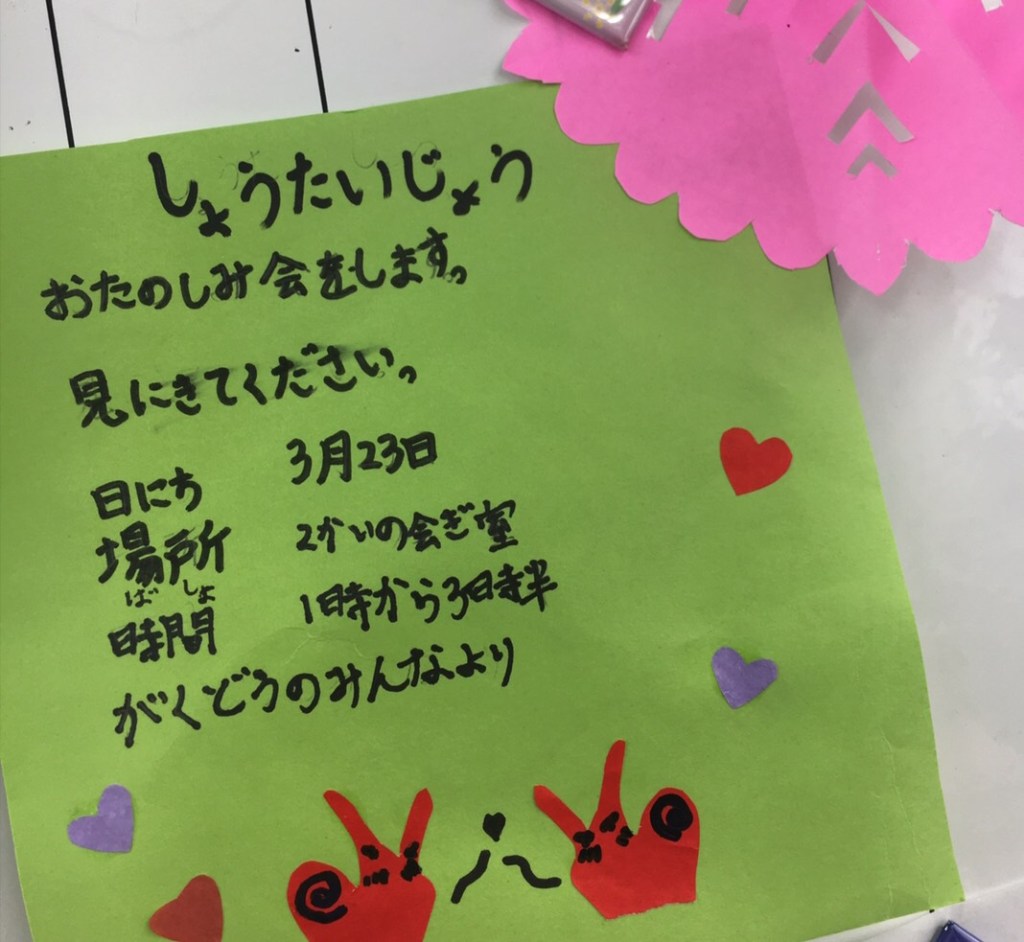 しょうたいじょう
おたのしみ会をします。
見にきてください。
日にち 3月23日
場所 2かいの会ぎ室
ばしょ
時間 1時から3時半
がくどうのみんなより